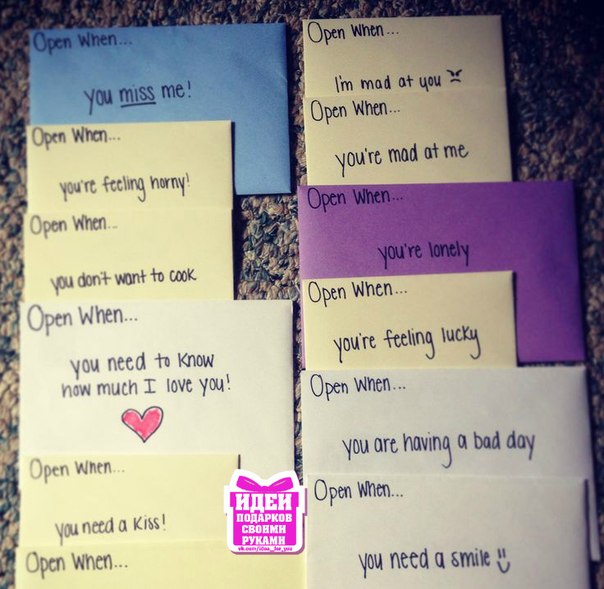 Open When...
you miss me!
Open When...
you're feeling horny!
Open When...
you don't want to cook
Open When...
you need to know
how much I love you!
Open When...
you need a kiss!
Open When...
Open When...
I'm mad at you
Open When...
you're mad at me
Open When...
you're lonely
Open When...
you're feeling lucky
Open When...
you are having a bad day
Open When...
you need a smile
ИДЕИ
ПОДАРКОВ
СВОИМИ
РУКАМИ
vk.com/idea_for_you